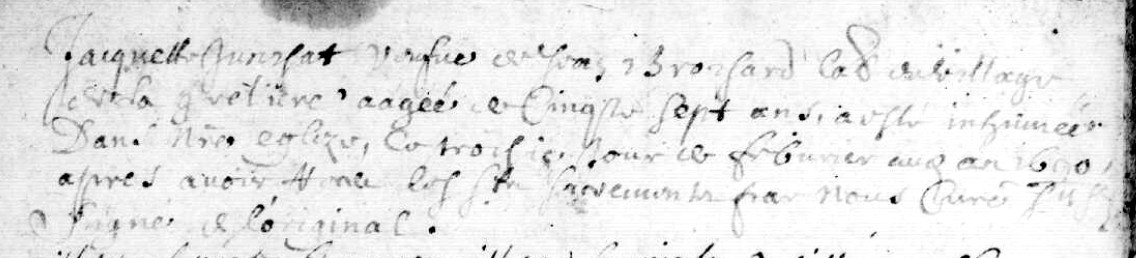 Jacquette Jurrhat veufve de Jean Brochard lab du village
de la gretiere aagée de Cinqte sept ans, a este inhumée
Dans Nre eglize, le troisie Jour de febvrier aud an 1690,
apres avoir Receu les sts sacrements par Nous Curé
Signé a l'original.